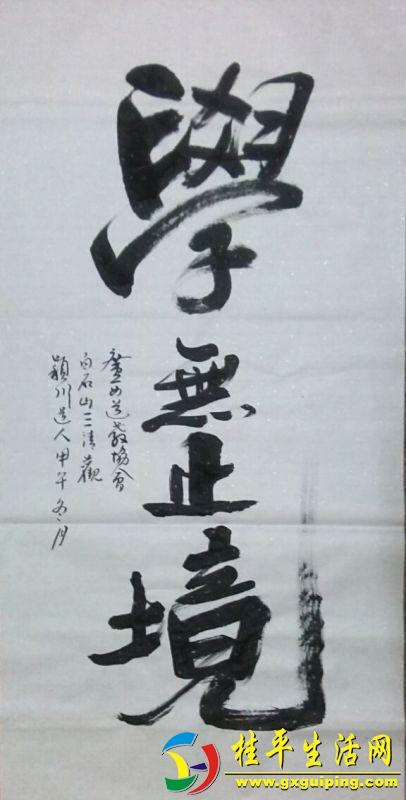 學無止境
廣西道教協會
白石山三清觀
潁川道人甲午冬月
桂平生活网
www.gxguiping.com